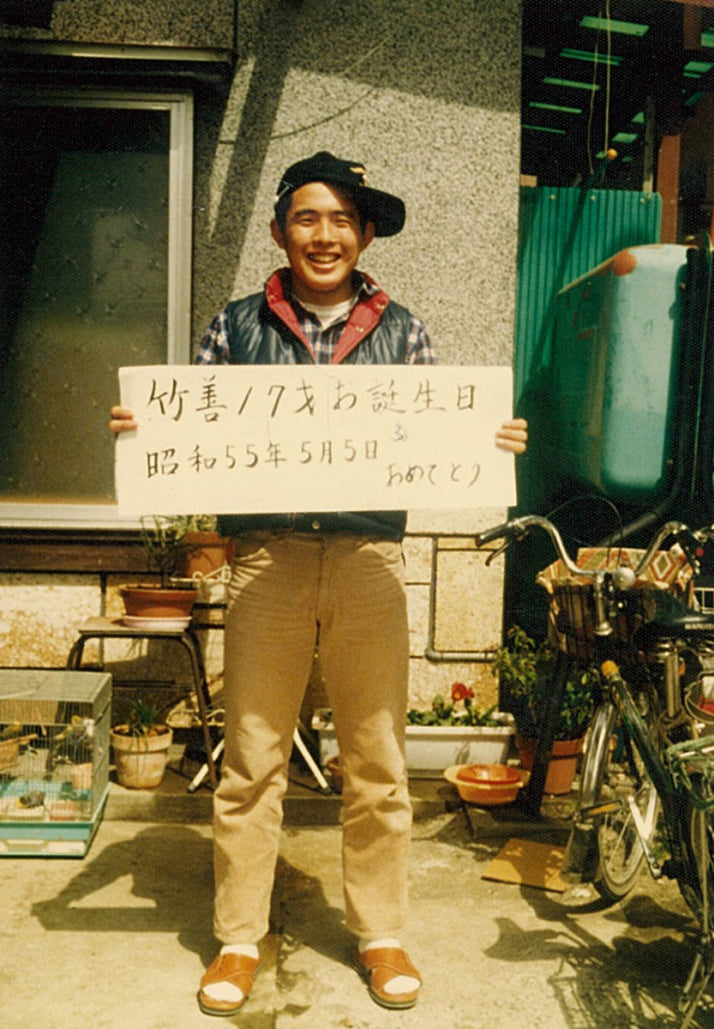 竹善17才お誕生日
昭和55年5月5日
おめてとう